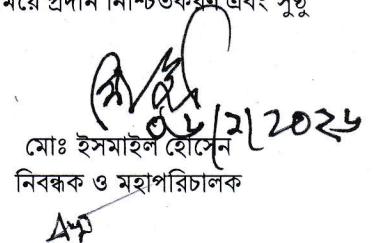 ময়ে প্রদান নিশ্চিতকরণ এবং সুষ্ঠু
০৬/২/২০২৬
মোঃ ইসমাইল হোসেন
নিবন্ধক ও মহাপরিচালক